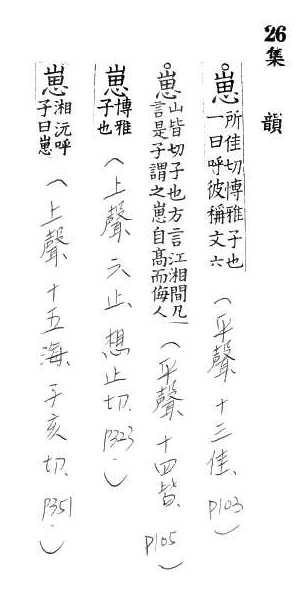 26集 韻
。崽所佳切博雅子也一曰呼彼稱文六(平聲、十三佳、P103)
。崽山皆切子也方言江湘間凡言是子謂之崽自高而侮人(平聲十四皆、P105)
崽博雅子也(上聲、六止、想止切、P323、)
崽湘沅呼子曰崽(上聲、十五海、子亥切、P351)